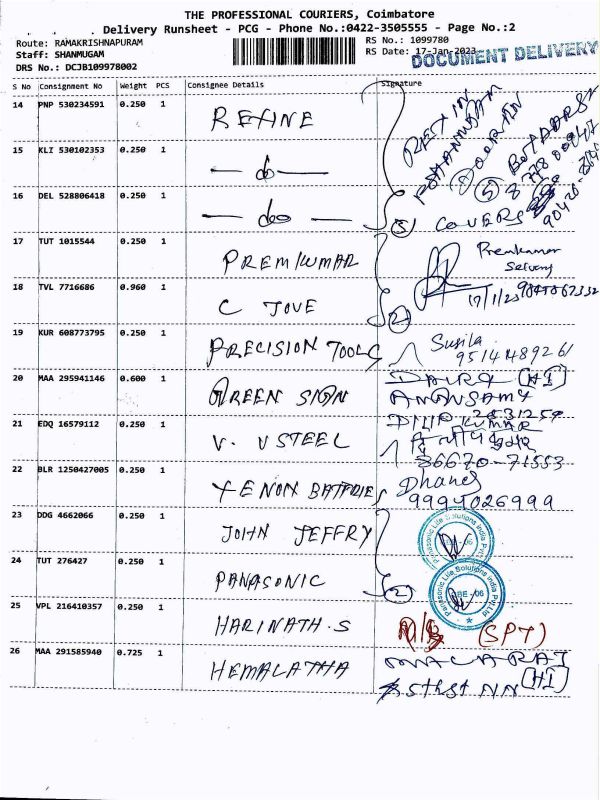 THE PROFESSIONAL COURIERS, Coimbatore
Delivery Runsheet - PCG - Phone No.:0422-3505555 - Page No.:2
Route: RAMAKRISHNAPURAM
Staff: SHANMUGAM
DRS No.: DCJB109978002
RS No.: 1099780
RS Date: 17-Jan-2023
DOCUMENT DELIVERY
S No Consignment No Weight PCS Consignee Details Signature
14 PNP 530234591 0.250 1 REFINE
15 KLI 530102353 0.250 1 — do —
16 DEL 528806418 0.250 1 — do —
5 COVERS
17 TUT 1015544 0.250 1 PREMKUMAR Premkumar
18 TVL 7716686 0.960 1 C JOVE 2 17/1/23
19 KUR 608773795 0.250 1 PRECISION TOOLS Susila
9514489261
20 MAA 295941146 0.600 1 GREEN SIGN (HI)
21 EDQ 16579112 0.250 1 V. V STEEL DILIP KUMAR
86670-71553
22 BLR 1250427005 0.250 1 XENON BATTERIES Dhanes
9994026999
23 DDG 4662066 0.250 1 JOHN JEFFRY
24 TUT 276427 0.250 1 PANASONIC 2
Panasonic Life Solutions India Pvt Ltd
Panasonic Life Solutions India Pvt Ltd
25 VPL 216410357 0.250 1 HARINATH.S (SPT)
26 MAA 291585940 0.725 1 HEMALATHA
(HI)